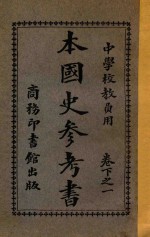 中學校教員用
卷下之一
本國史參考書
商務印書館出版